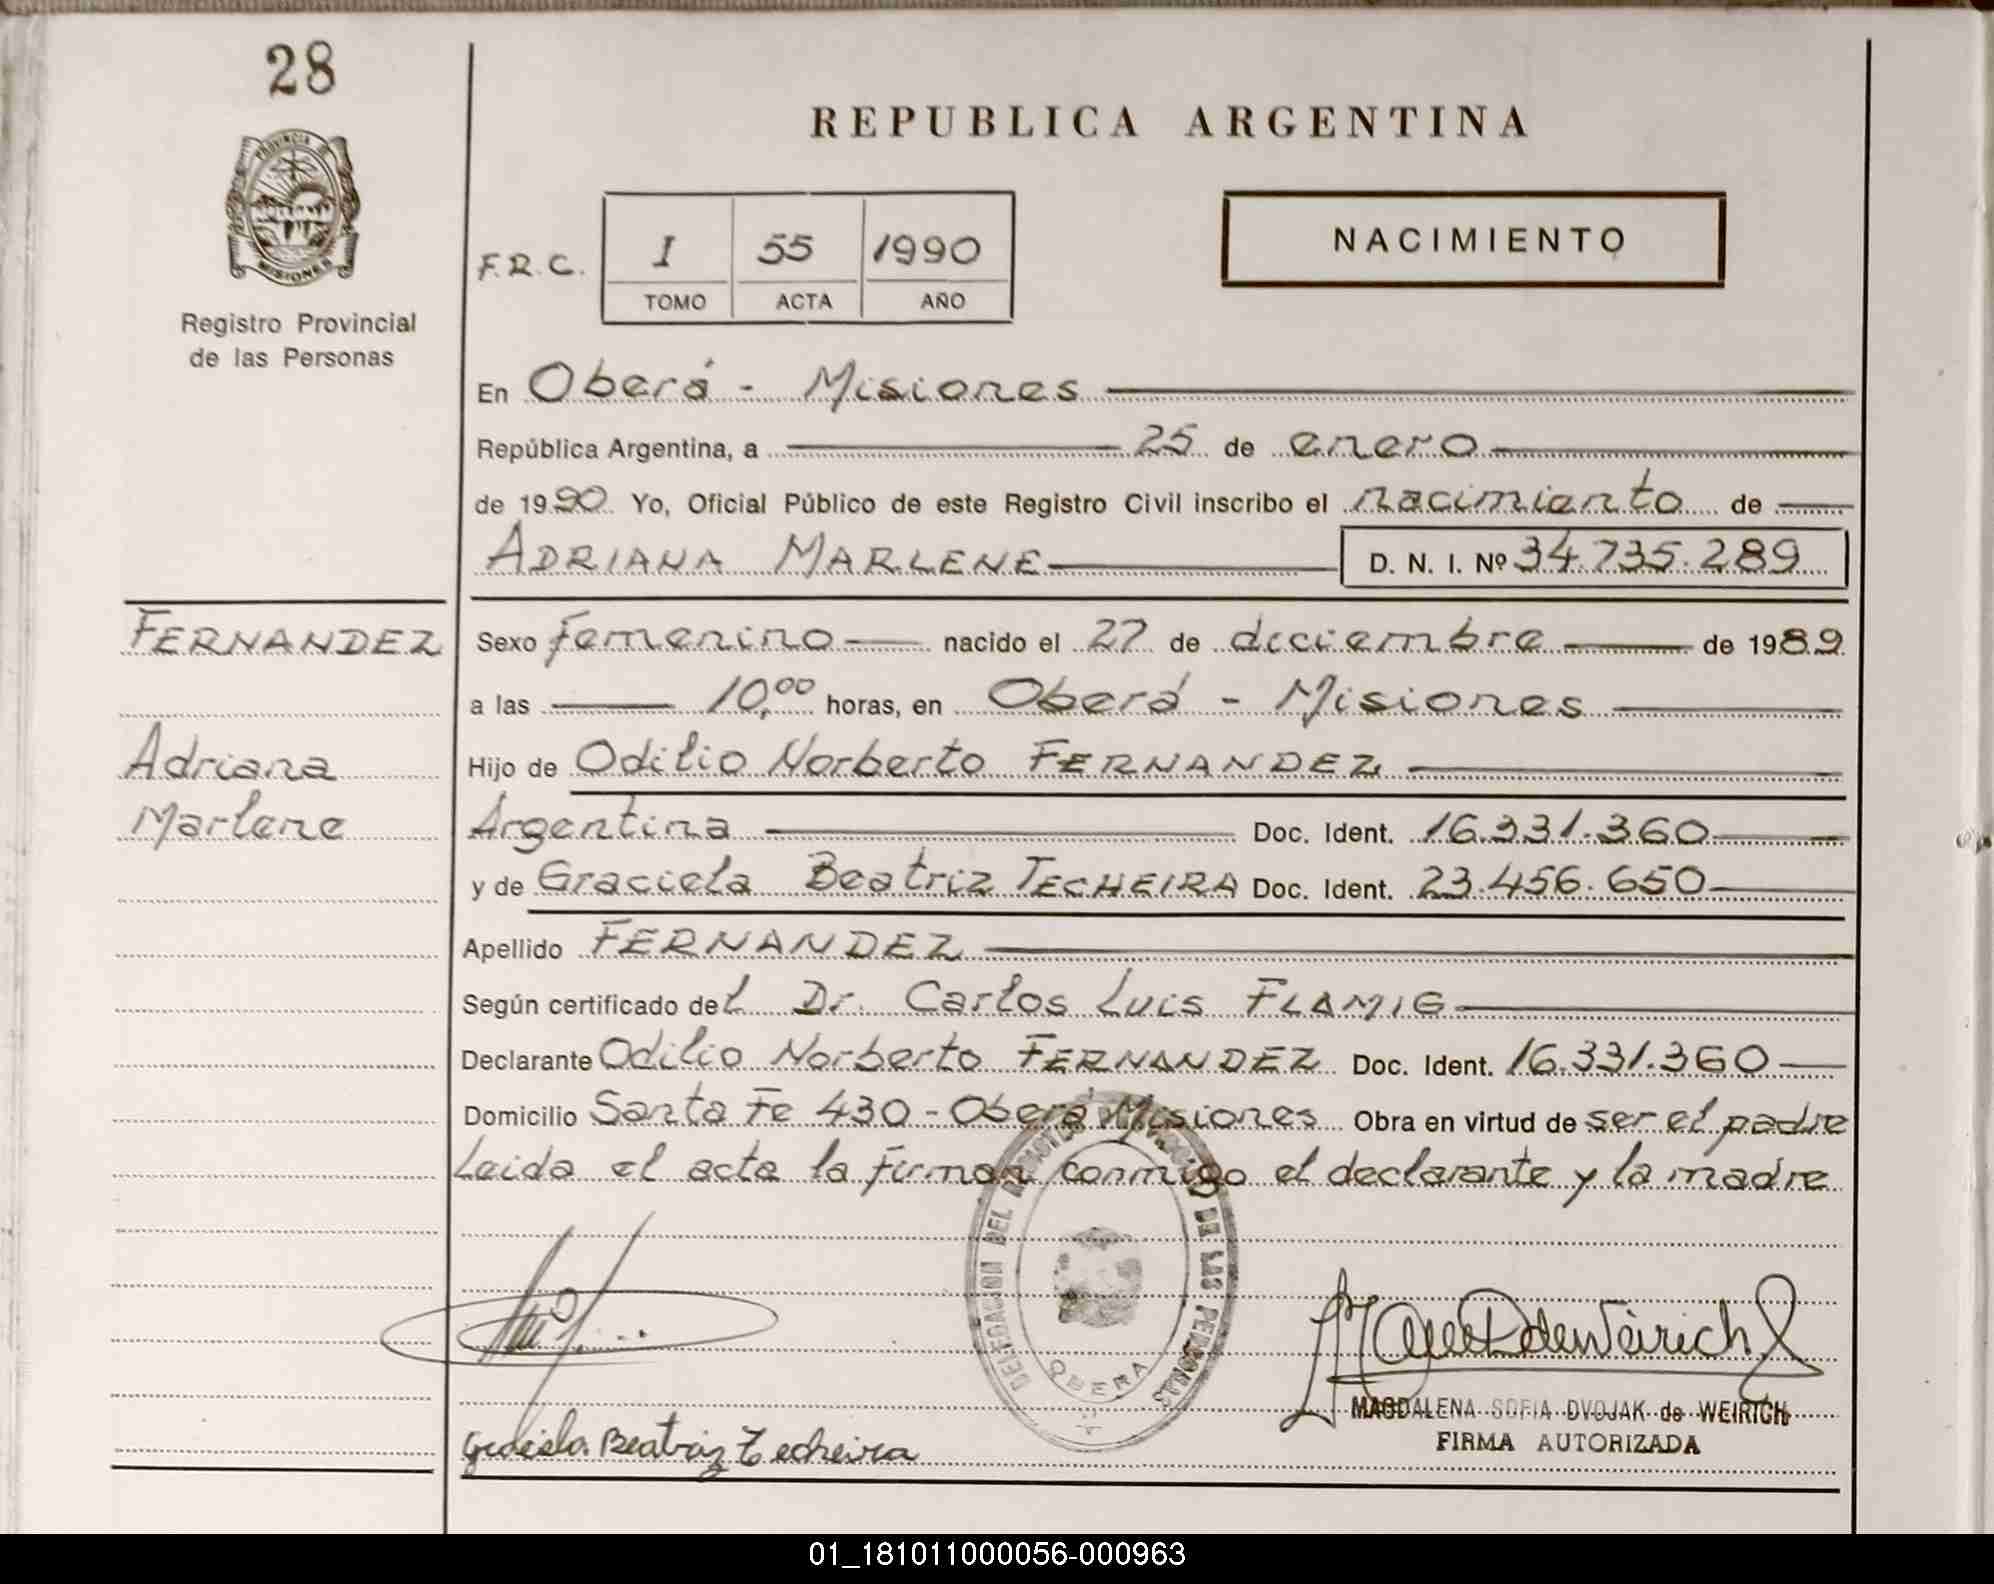 28
PROVINCIA DE
MISIONES
Registro Provincial
de las Personas
REPUBLICA ARGENTINA
F.R.C.
I 55 1990
TOMO ACTA AÑO
NACIMIENTO
En Oberá - Misiones
República Argentina, a 25 de enero
de 1990 Yo, Oficial Público de este Registro Civil inscribo el nacimiento de
ADRIANA MARLENE D. N. I. Nº 34.735.289
FERNANDEZ
Adriana
Marlene
Sexo femenino nacido el 27 de diciembre de 1989
a las 10,00 horas, en Oberá - Misiones
Hijo de Odilio Norberto FERNANDEZ
Argentina Doc. Ident. 16.331.360
y de Graciela Beatriz TECHEIRA Doc. Ident. 23.456.650
Apellido FERNANDEZ
Según certificado del Dr. Carlos Luis FLAMIG
Declarante Odilio Norberto FERNANDEZ Doc. Ident. 16.331.360
Domicilio Santa Fe 430 - Oberá Misiones Obra en virtud de ser el padre
Leida el acta la firman conmigo el declarante y la madre
DELEGACION DEL REGISTRO PROVINCIAL DE LAS PERSONAS
OBERA
MAGDALENA SOFIA DVOJAK de WEIRICH
FIRMA AUTORIZADA
Graciela Beatriz Techeira
01_181011000056-000963